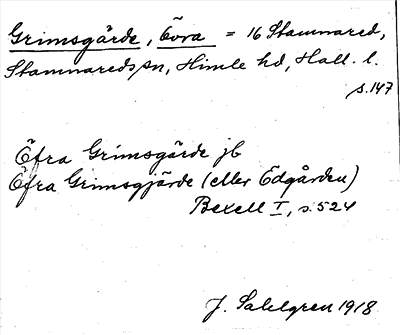 Grimsgärde, Övra = 16 Stamnared,
Stamnareds sn, Himle hd, Hall. l.
s. 147
Öfra Grimsgärde jb
Öfra Grimsgjärde (eller Edgården)
Bexell I, s. 524
J. Sahlgren 1918